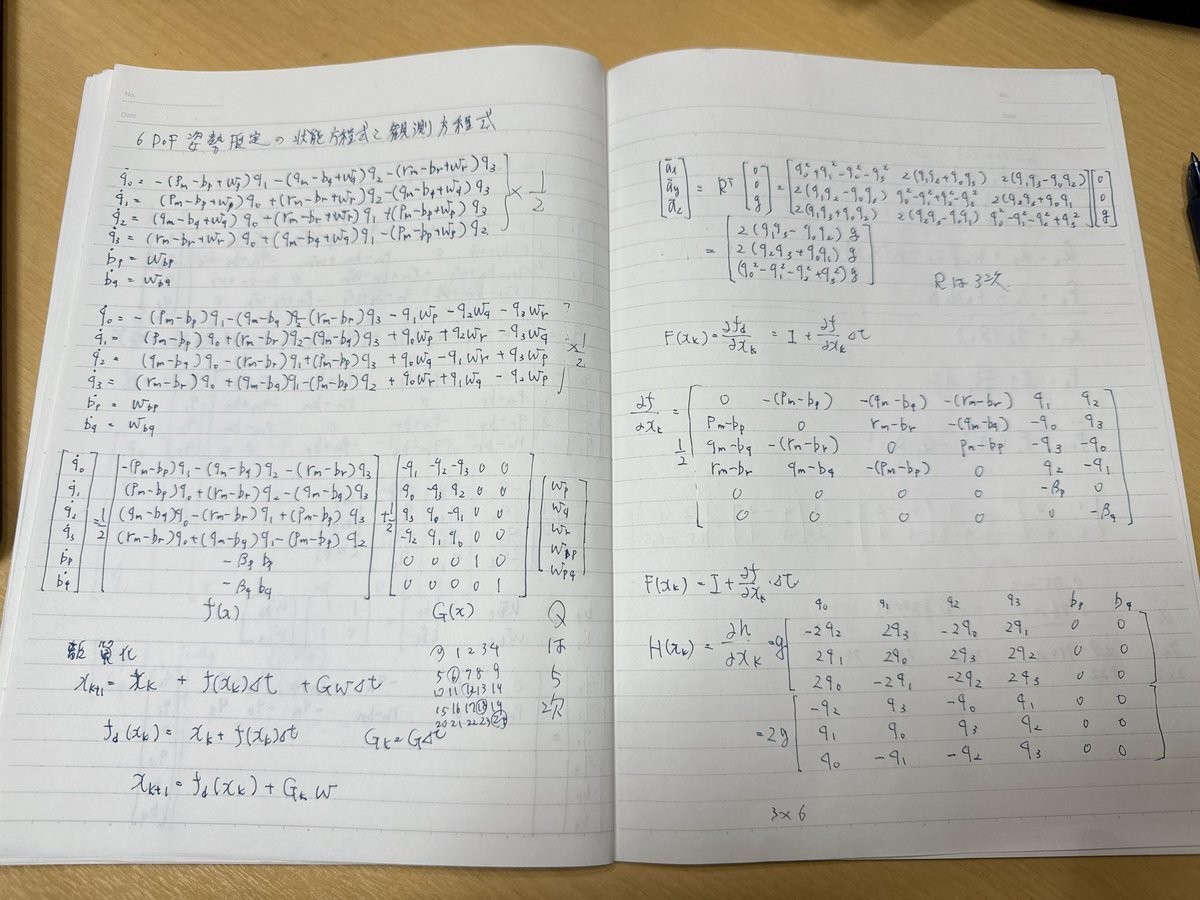 No.
Date
6 DoF 姿勢推定の状態方程式と観測方程式
q̇0 = -(Pm-bp+wp)q1-(qm-bq+wq)q2-(rm-br+wr)q3
q̇1 = (Pm-bp+wp)q0+(rm-br+wr)q2-(qm-bq+wq)q3
q̇2 = (qm-bq+wq)q0-(rm-br+wr)q1+(Pm-bp+wp)q3
q̇3 = (rm-br+wr)q0+(qm-bq+wq)q1-(Pm-bp+wp)q2
} × 1/2
ḃp = wbp
ḃq = wbq
q̇0 = -(Pm-bp)q1-(qm-bq)q2-(rm-br)q3 -q1wp -q2wq -q3wr
q̇1 = (Pm-bp)q0+(rm-br)q2-(qm-bq)q3 +q0wp+q2wr-q3wq
q̇2 = (qm-bq)q0-(rm-br)q1+(Pm-bp)q3 +q0wq-q1wr+q3wp
q̇3 = (rm-br)q0+(qm-bq)q1-(Pm-bp)q2 +q0wr+q1wq-q2wp
× 1/2
ḃp = wbp
ḃq = wbq
q̇0 -(Pm-bp)q1-(qm-bq)q2-(rm-br)q3 -q1 -q2 -q3 0 0
q̇1 (Pm-bp)q0+(rm-br)q2-(qm-bq)q3 q0 -q3 q2 0 0 wp
q̇2 = 1/2 (qm-bq)q0-(rm-br)q1+(Pm-bp)q3 + 1/2 q3 q0 -q1 0 0 wq
q̇3 (rm-br)q0+(qm-bq)q1-(Pm-bp)q2 -q2 q1 q0 0 0 wr
ḃp -βp bp 0 0 0 1 0 wbp
ḃq -βq bq 0 0 0 0 1 wbq
f(x) G(x) Q
は
5
次
離散化
0 1 2 3 4
5 6 7 8 9
10 11 12 13 14
15 16 17 18 19
20 21 22 23 24
xk+1 = xk + f(xk)Δt + GwΔt
fd(xk) = xk + f(xk)Δt Gk = GΔt
xk+1 = fd(xk) + Gk w
āx
āy
āz
= R^T
0
0
g
=
q0²+q1²-q2²-q3² 2(q1q2+q0q3) 2(q1q3-q0q2) 0
2(q1q2-q0q3) q0²-q1²+q2²-q3² 2(q2q3+q0q1) 0
2(q1q3+q0q2) 2(q2q3-q0q1) q0²-q1²-q2²+q3² g
=
2(q1q3-q0q2)g
2(q2q3+q0q1)g
(q0²-q1²-q2²+q3²)g
Rは3次
F(xk) = ∂fd/∂xk = I + ∂f/∂xk Δt
∂f/∂xk = 1/2
0 -(Pm-bp) -(qm-bq) -(rm-br) q1 q2
Pm-bp 0 rm-br -(qm-bq) -q0 q3
qm-bq -(rm-br) 0 Pm-bp -q3 -q0
rm-br qm-bq -(Pm-bp) 0 q2 -q1
0 0 0 0 -βp 0
0 0 0 0 0 -βq
F(xk) = I + ∂f/∂xk・Δt
q0 q1 q2 q3 bp bq
H(xk) = ∂h/∂xk = g
-2q2 2q3 -2q0 2q1 0 0
2q1 2q0 2q3 2q2 0 0
2q0 -2q1 -2q2 2q3 0 0
= 2g
-q2 q3 -q0 q1 0 0
q1 q0 q3 q2 0 0
q0 -q1 -q2 q3 0 0
3×6